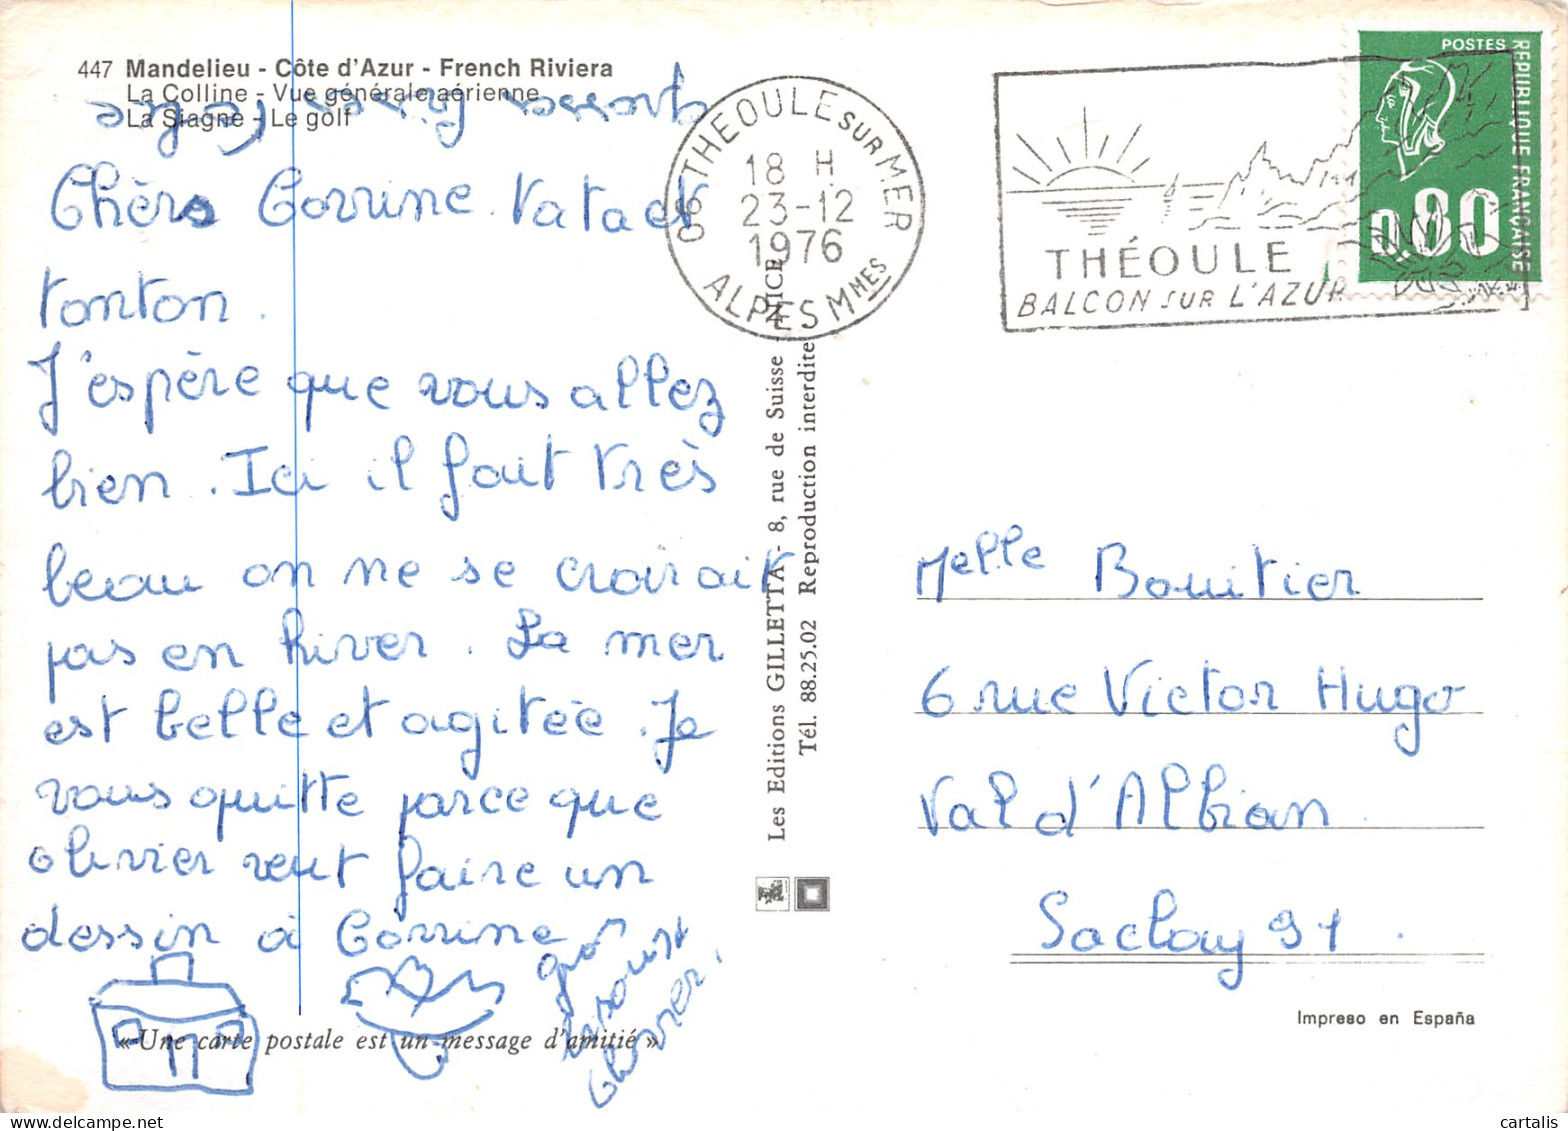 447 Mandelieu - Côte d'Azur - French Riviera
La Colline - Vue générale aérienne
La Siagne - Le golf
Chère Corrine. Tata et
tonton.
J'espère que vous allez
bien. Ici il fait très
beau on ne se croirait
pas en hiver. La mer
est belle et agitée. Je
vous quitte parce que
olivier veut faire un
dessin à Corrine
gros
bisous
olivier.
« Une carte postale est un message d'amitié »
Les Editions GILLETTA - 8, rue de Suisse - NICE
Tél. 88.25.02 Reproduction interdite
06 THEOULE SUR MER
18 H
23-12
1976
ALPES MMES
THÉOULE
BALCON SUR L'AZUR
POSTES
REPUBLIQUE FRANÇAISE
0,80
Melle Bouitier
6 rue Victor Hugo
Val d'Albian
Saclay 91.
Impreso en España
cartalis